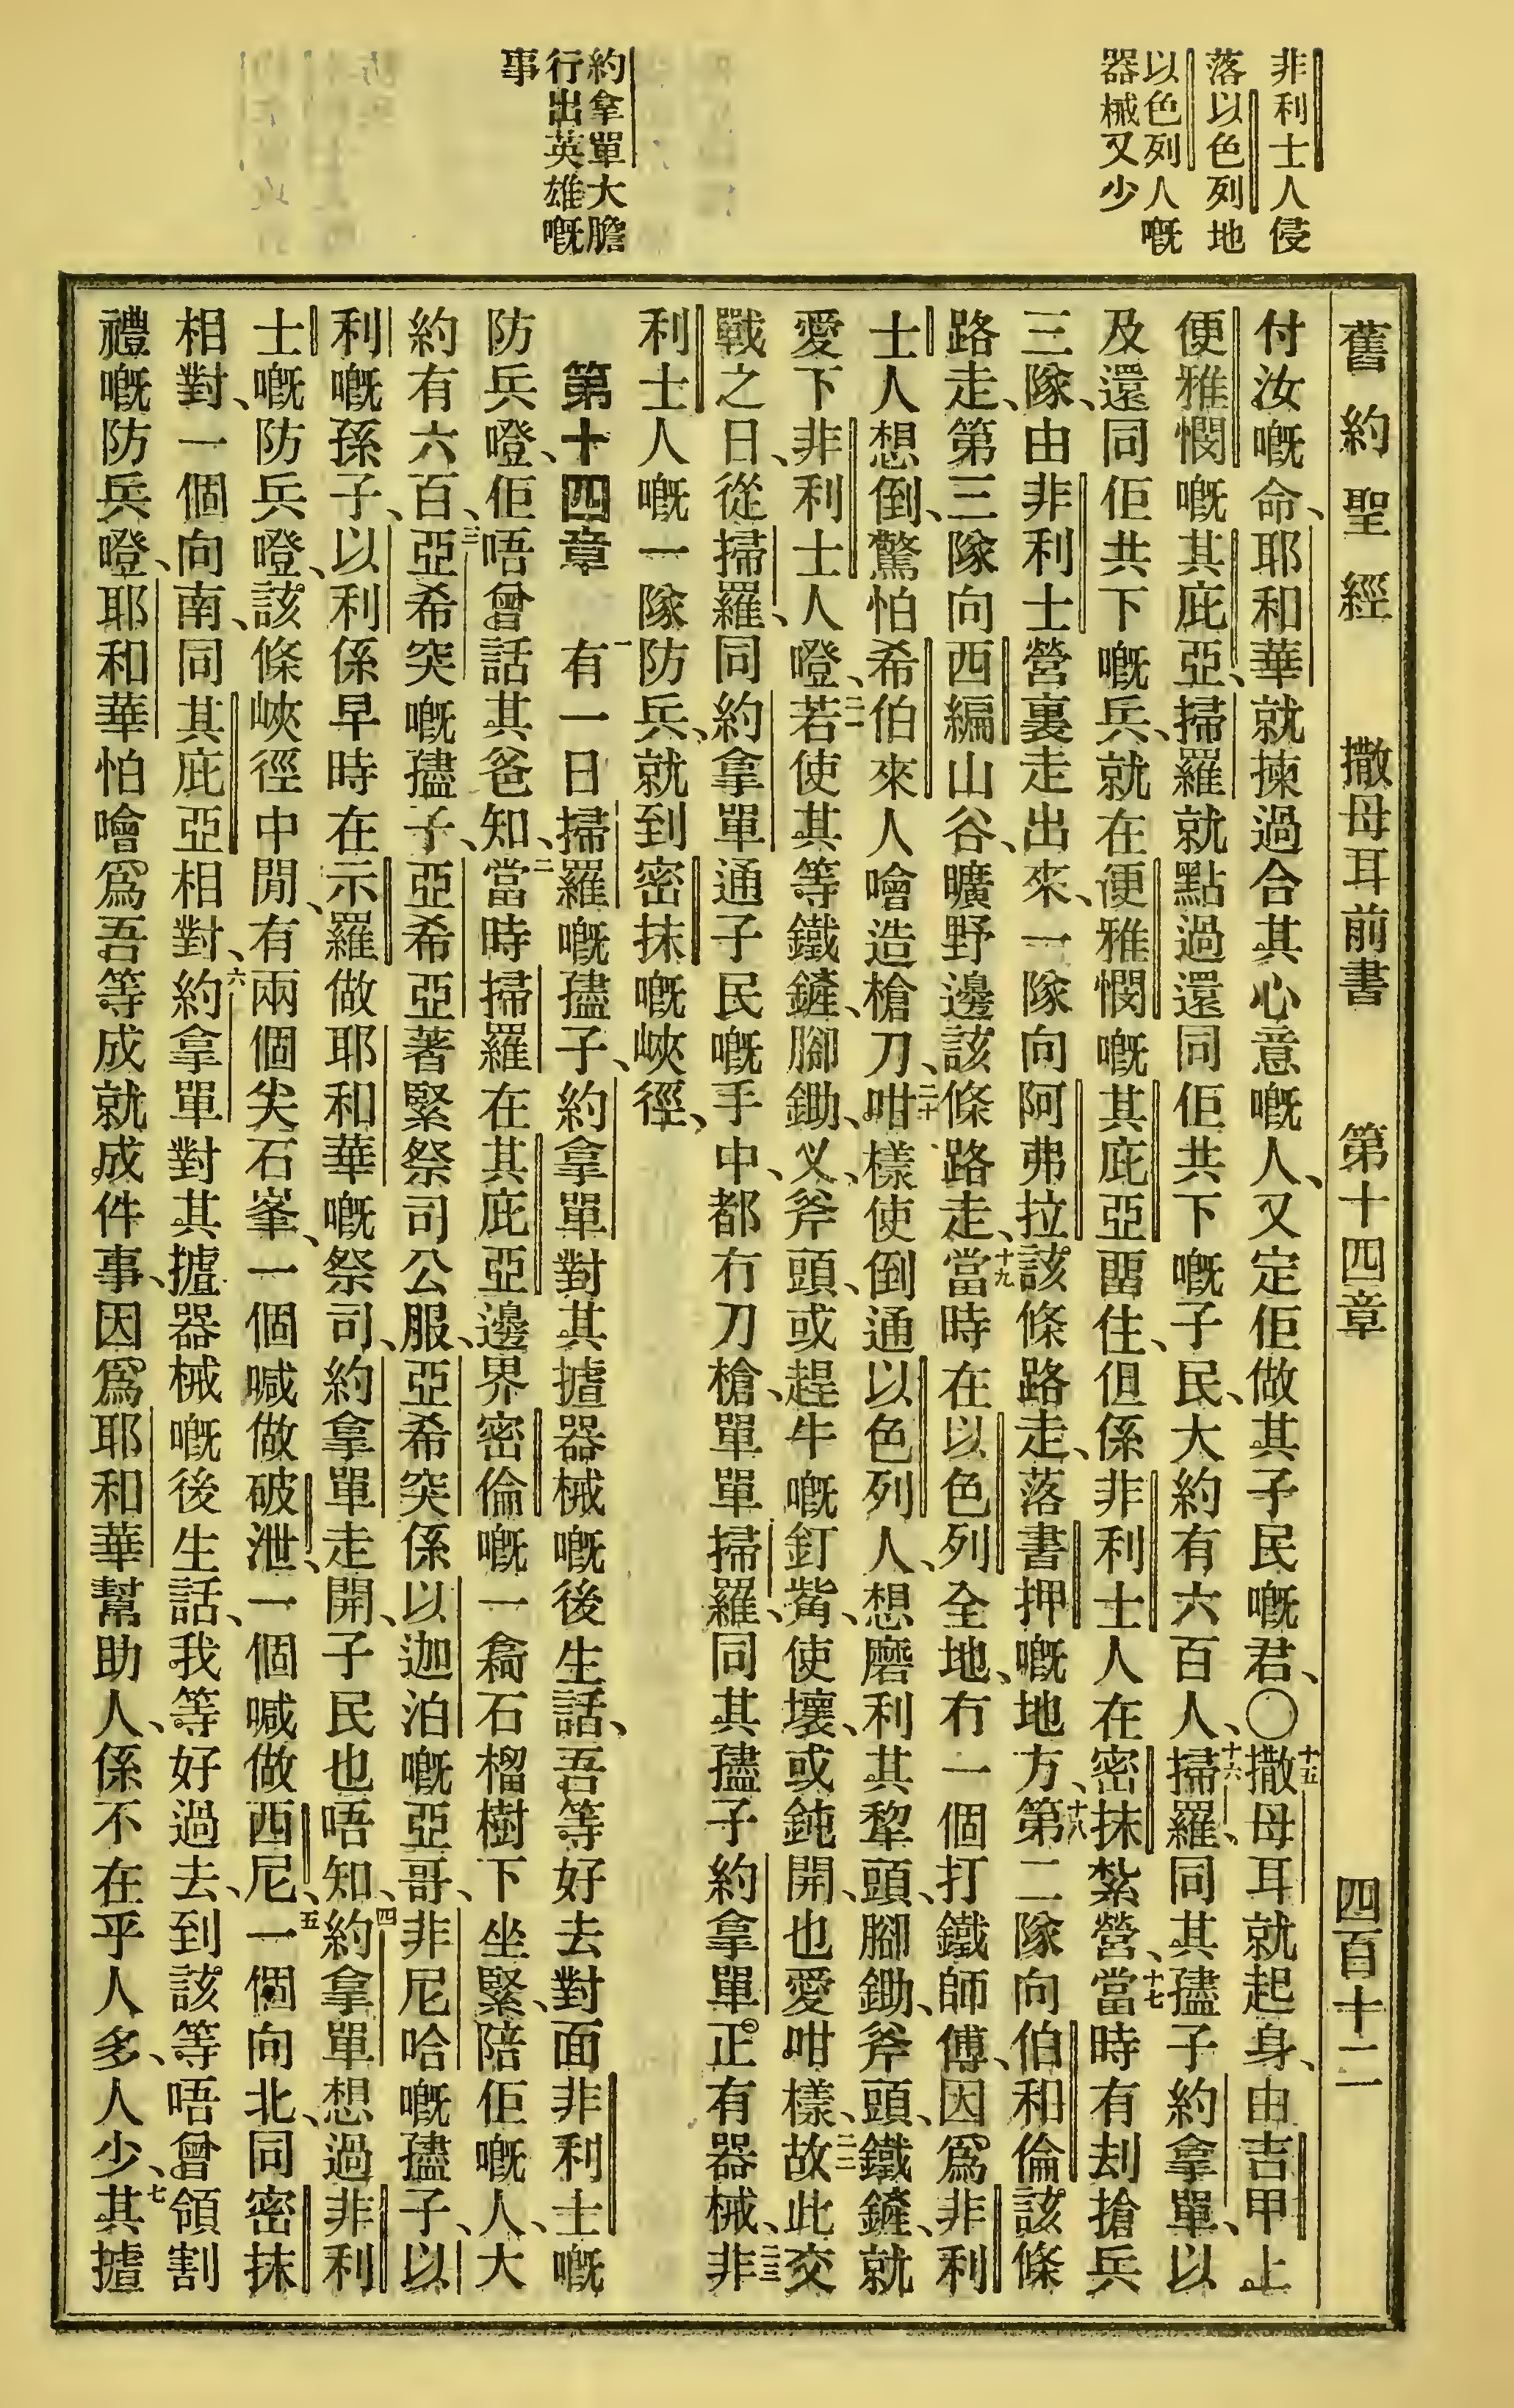 非利士人侵
落以色列地
以色列人嘅
器械又少
約拿單大膽
行出英雄嘅
事
舊約聖經 撒母耳前書 第十四章 四百十二
付汝嘅命、耶和華就揀過合其心意嘅人、又定佢做其子民嘅君、〇十五撒母耳就起身、由吉甲上
便雅憫嘅其庇亞、掃羅就點過還同佢共下嘅子民、大約有六百人、十六掃羅、同其孻子約拿單、以
及還同佢共下嘅兵、就在便雅憫嘅其庇亞畱住、但係非利士人在密抹紮營、十七當時有刦搶兵
三隊、由非利士營裏走出來、一隊向阿弗拉該條路走、落書押嘅地方、十八第二隊向伯和倫該條
路走、第三隊向西編山谷、曠野邊該條路走、十九當時在以色列全地、冇一個打鐵師傅、因爲非利
士人想倒、驚怕希伯來人噲造槍刀、二十咁樣使倒通以色列人、想磨利其犂頭、腳鋤、斧頭、鐵鏟、就
愛下非利士人嶝、二一若使其等鐵鏟、腳鋤、义、斧頭、或趕牛嘅釘觜、使壞、或鈍開、也愛咁樣、二二故此交
戰之日、從掃羅、同約拿單通子民嘅手中、都冇刀槍、單單掃羅、同其孻子約拿單正有器械、二三非
利士人嘅一隊防兵、就到密抹嘅峽徑、
第十四章 一有一日掃羅嘅孻子、約拿單對其摣器械嘅後生話、吾等好去對面非利士嘅
防兵嶝、佢唔曾話其爸知、二當時掃羅在其庇亞邊界密倫嘅一䅵石榴樹下坐緊、陪佢嘅人、大
約有六百、三亞希突嘅孻子、亞希亞著緊祭司公服、亞希突係以迦泊嘅亞哥、非尼哈嘅孻子、以
利嘅孫子、以利係早時在示羅做耶和華嘅祭司、約拿單走開、子民也唔知、四約拿單想過非利
士嘅防兵嶝、該條峽徑中閒、有兩個尖石峯、一個喊做破泄、一個喊做西尼、五一個向北、同密抹
相對、一個向南、同其庇亞相對、六約拿單對其摣器械嘅後生話、我等好過去、到該等唔曾領割
禮嘅防兵嶝、耶和華怕噲爲吾等成就成件事、因爲耶和華幫助人、係不在乎人多、人少、七其摣